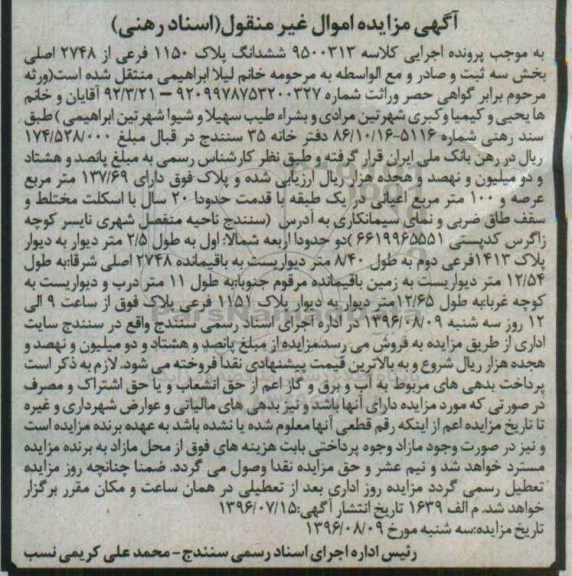 آگهی مزایده اموال غیر منقول(اسناد رهنی)
به موجب پرونده اجرایی کلاسه ۹۵۰۰۳۱۳ ششدانگ پلاک ۱۱۵۰ فرعی از ۲۷۴۸ اصلی
بخش سه ثبت و صادر و مع الواسطه به مرحومه خانم لیلا ابراهیمی منتقل شده است(ورثه
مرحوم برابر گواهی حصر وراثت شماره ۹۲۰۹۹۷۸۷۵۳۲۰۰۳۲۷ – ۹۲/۳/۲۱ آقایان و خانم
ها یحیی و کیمیا و کبری شهرتین مرادی و بشراء طیب سهیلا و شیوا شهرتین ابراهیمی )طبق
سند رهنی شماره ۵۱۱۶-۸۶/۱۰/۱۶ دفتر خانه ۳۵ سنندج در قبال مبلغ ۱۷۴/۵۲۸/۰۰۰
ریال در رهن بانک ملی ایران قرار گرفته و طبق نظر کارشناس رسمی به مبلغ پانصد و هشتاد
و دو میلیون و نهصد و هجده هزار ریال ارزیابی شده و پلاک فوق دارای ۱۳۷/۶۹ متر مربع
عرصه و ۱۰۰ متر مربع اعیانی در یک طبقه با قدمت حدودا ۲۰ سال با اسکلت مختلط و
سقف طاق ضربی و نمای سیمانکاری به آدرس (سنندج ناحیه منفصل شهری نایسر کوچه
زاگرس کدپستی ۶۶۱۹۹۶۵۵۵۱ )دو حدودا اربعه شمالا: اول به طول ۲/۵ متر دیوار به دیوار
پلاک ۱۴۱۳فرعی دوم به طول ۸/۴۰ متر دیواریست به باقیمانده ۲۷۴۸ اصلی شرقا:به طول
۱۲/۵۴ متر دیواریست به زمین باقیمانده مرقوم جنوبا:به طول ۱۱ متر درب و دیواریست به
کوچه غربا:به طول ۱۲/۶۵متر دیوار به دیوار پلاک ۱۱۵۱ فرعی پلاک فوق از ساعت ۹ الی
۱۲ روز سه شنبه ۱۳۹۶/۰۸/۰۹ در اداره اجرای اسناد رسمی سنندج واقع در سنندج سایت
اداری از طریق مزایده به فروش می رسد.مزایده از مبلغ پانصد و هشتاد و دو میلیون و نهصد و
هجده هزار ریال شروع و به بالاترین قیمت پیشنهادی نقدا فروخته می شود. لازم به ذکر است
پرداخت بدهی های مربوط به آب و برق و گاز اعم از حق انشعاب و یا حق اشتراک و مصرف
در صورتی که مورد مزایده دارای آنها باشد و نیز بدهی های مالیاتی و عوارض شهرداری و غیره
تا تاریخ مزایده اعم از اینکه رقم قطعی آنها معلوم شده یا نشده باشد به عهده برنده مزایده است
و نیز در صورت وجود مازاد وجوه پرداختی بابت هزینه های فوق از محل مازاد به برنده مزایده
مسترد خواهد شد و نیم عشر و حق مزایده نقدا وصول می گردد. ضمنا چنانچه روز مزایده
تعطیل رسمی گردد مزایده روز اداری بعد از تعطیلی در همان ساعت و مکان مقرر برگزار
خواهد شد. م الف ۱۶۳۹ تاریخ انتشار آگهی:۱۳۹۶/۰۷/۱۵
تاریخ مزایده:سه شنبه مورخ ۱۳۹۶/۰۸/۰۹
رئیس اداره اجرای اسناد رسمی سنندج-محمد علی کریمی نسب